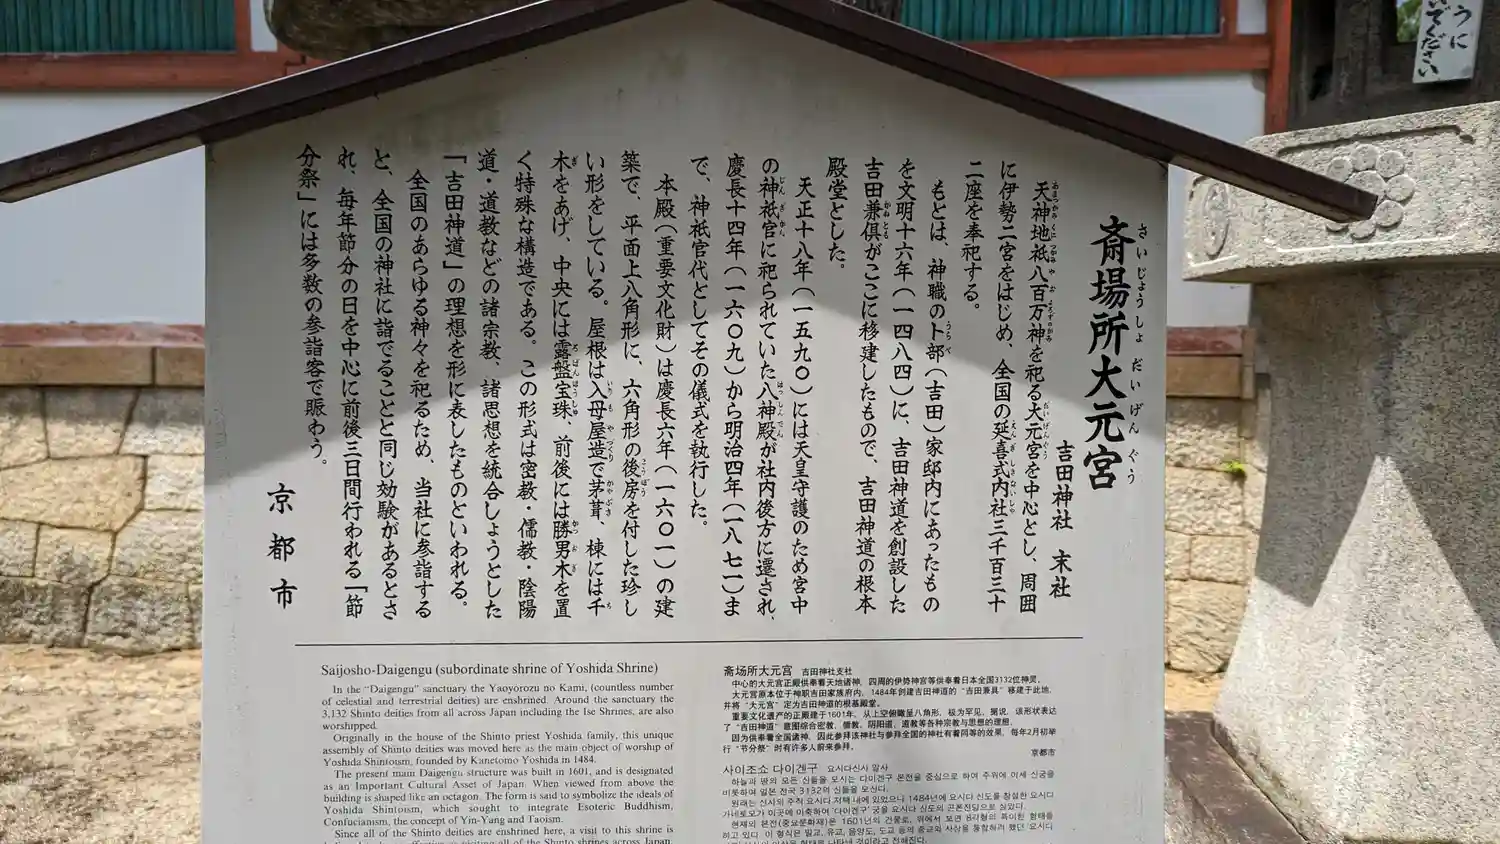 斎場所大元宮
さいじょうしょ だいげんぐう
吉田神社 末社
天神地祇八百万神を祀る大元宮を中心とし、周囲
に伊勢二宮をはじめ、全国の延喜式内社三千百三十
二座を奉祀する。
もとは、神職の卜部(吉田)家邸内にあったもの
を文明十六年(一四八四)に、吉田神道を創設した
吉田兼倶がここに移建したもので、吉田神道の根本
殿堂とした。
天正十八年(一五九〇)には天皇守護のため宮中
の神祇官に祀られていた八神殿が社内後方に遷され、
慶長十四年(一六〇九)から明治四年(一八七一)ま
で、神祇官代としてその儀式を執行した。
本殿(重要文化財)は慶長六年(一六〇一)の建
築で、平面上八角形に、六角形の後房を付した珍し
い形をしている。屋根は入母屋造で茅葺、棟には千
木をあげ、中央には露盤宝珠、前後には勝男木を置
く特殊な構造である。この形式は密教・儒教・陰陽
道・道教などの諸宗教、諸思想を統合しようとした
「吉田神道」の理想を形に表したものといわれる。
全国のあらゆる神々を祀るため、当社に参詣する
と、全国の神社に詣でることと同じ効験があるとさ
れ、毎年節分の日を中心に前後三日間行われる「節
分祭」には多数の参詣客で賑わう。
京都市
Saijosho-Daigengu (subordinate shrine of Yoshida Shrine)
In the "Daigengu" sanctuary the Yaoyorozu no Kami, (countless number
of celestial and terrestrial deities) are enshrined. Around the sanctuary the
3,132 Shinto deities from all across Japan including the Ise Shrines, are also
worshipped.
Originally in the house of the Shinto priest Yoshida family, this unique
assembly of Shinto deities was moved here as the main object of worship of
Yoshida Shintoism, founded by Kanetomo Yoshida in 1484.
The present main Daigengu structure was built in 1601, and is designated
as an Important Cultural Asset of Japan. When viewed from above the
building is shaped like an octagon. The form is said to symbolize the ideals of
Yoshida Shintoism, which sought to integrate Esoteric Buddhism,
Confucianism, the concept of Yin-Yang and Taoism.
Since all of the Shinto deities are enshrined here, a visit to this shrine is
斋场所大元宫 吉田神社支社
中心的大元宫正殿供奉着天地诸神，四周的伊势神宫等供奉着日本全国3132位神灵。
大元宫原本位于神职吉田家族府内，1484年创建吉田神道的“吉田兼具”移建于此地，
并将“大元宫”定为吉田神道的根基殿堂。
重要文化遗产的正殿建于1601年，从上空俯瞰呈八角形，极为罕见，据说，该形状表达
了“吉田神道”意图综合密教、儒教、阴阳道、道教等各种宗教与思想的理想。
因为供奉着全国诸神，因此参拜该神社与参拜全国的神社有着同等的效果，每年2月初举
行“节分祭”时有许多人前来参拜。
京都市
사이조쇼 다이겐구 요시다신사 말사
하늘과 땅의 모든 신들을 모시는 다이겐구 본전을 중심으로 하여 주위에 이세 신궁을
비롯하여 일본 전국 3132의 신들을 모신다.
うに
いでください